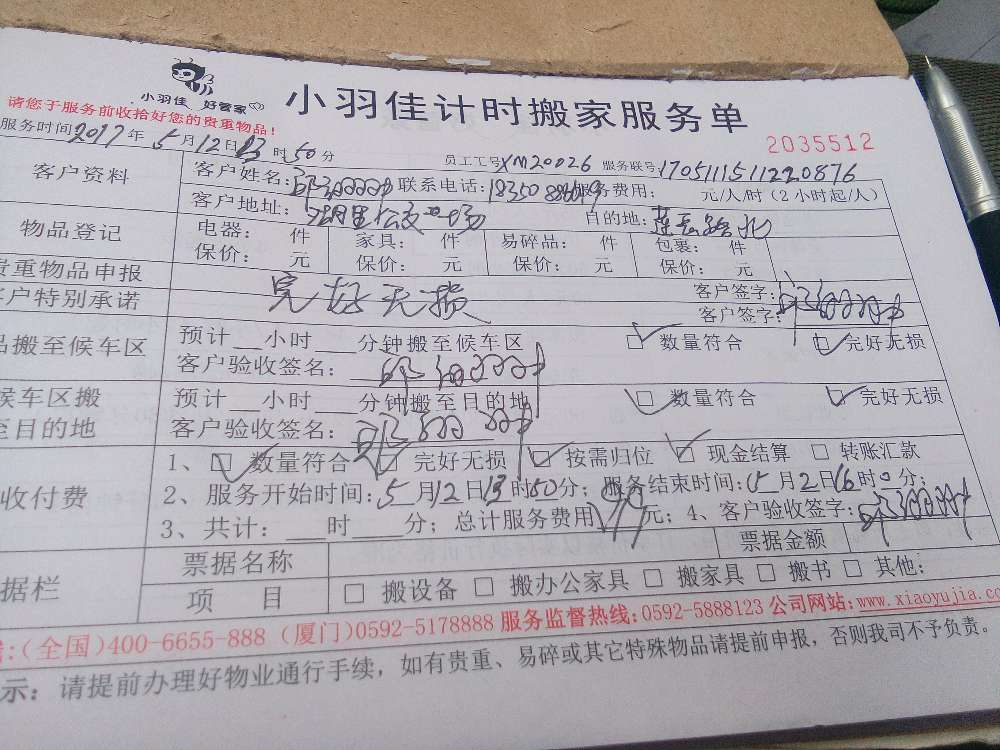 小羽佳 好管家
小羽佳计时搬家服务单
请您于服务前收拾好您的贵重物品！
2035512
服务时间2017年5月12日13时50分 员工工号XM20026 服务联号1705111511220876
客户资料 客户姓名: 联系电话: 服务费用: 元/人/时(2小时起/人)
客户地址: 目的地:
物品登记 电器: 件 家具: 件 易碎品: 件 包裹: 件
保价: 元 保价: 元 保价: 元 保价: 元
贵重物品申报 客户签字:
客户特别承诺 完好无损 客户签字:
品搬至候车区 预计 小时 分钟搬至候车区 数量符合 完好无损
客户验收签名:
候车区搬 预计 小时 分钟搬至目的地 数量符合 完好无损
至目的地 客户验收签名:
1、 数量符合 完好无损 按需归位 现金结算 转账汇款
收付费 2、服务开始时间:5月12日13时50分; 服务结束时间:5月2日16时0分;
3、共计: 时 分; 总计服务费用 元; 4、客户验收签字:
据栏 票据名称 票据金额
项 目 搬设备 搬办公家具 搬家具 搬书 其他:
(全国)400-6655-888 (厦门)0592-5178888 服务监督热线:0592-5888123 公司网站:www.xiaoyujia.co
示: 请提前办理好物业通行手续, 如有贵重、易碎或其它特殊物品请提前申报, 否则我司不予负责。